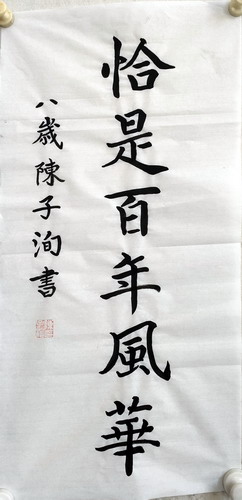 恰是百年風華
八歲陳子洵書